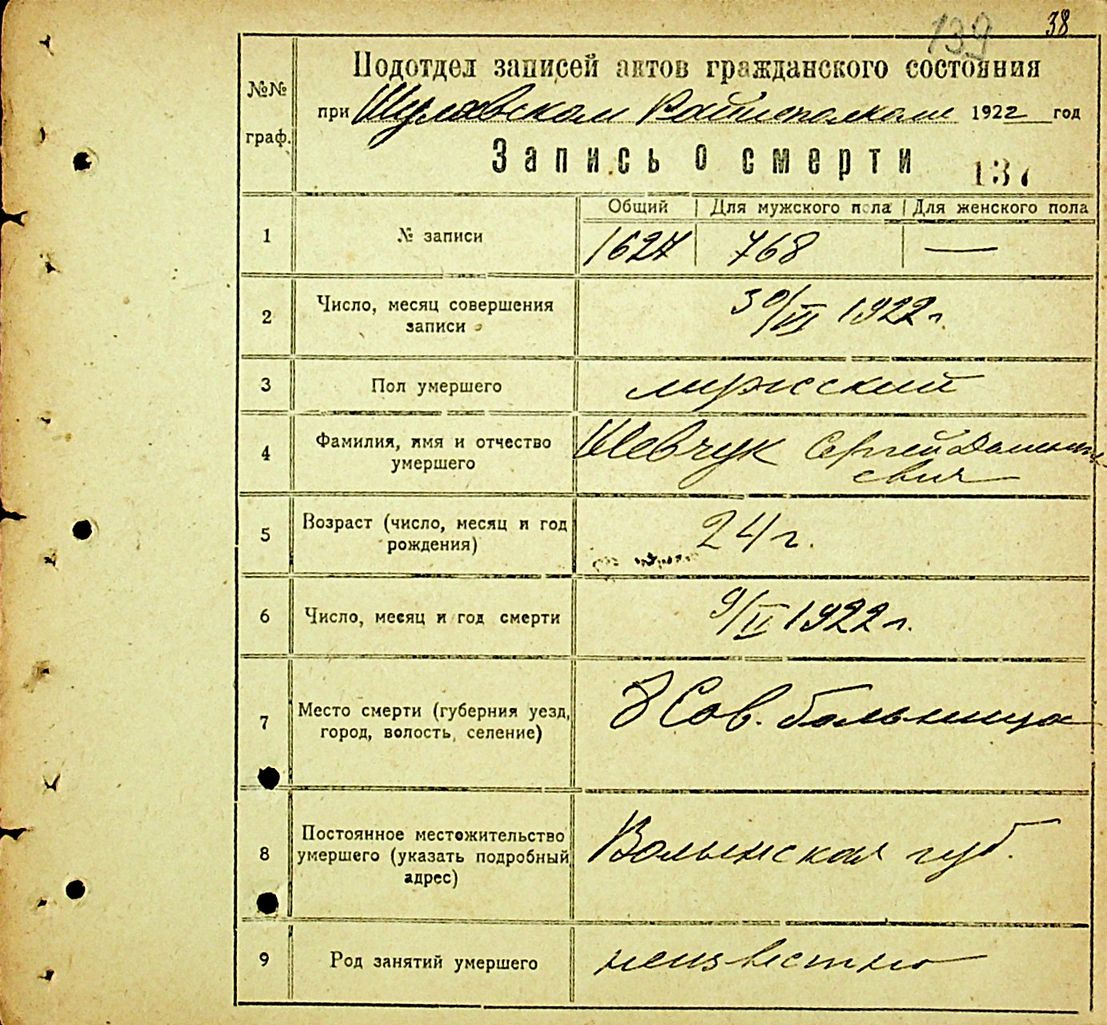 139 38
Подотдел записей актов гражданского состояния
при Шулявском Райисполкоме 1922 год
№№ граф.
Запись о смерти 137
Общий Для мужского пола Для женского пола
1 № записи 1627 768 —
2 Число, месяц совершения
записи 30/VI 1922 г.
3 Пол умершего мужский
4 Фамилия, имя и отчество Шевчук Сергей
умершего
5 Возраст (число, месяц и год
рождения) 24 г.
6 Число, месяц и год смерти 9/II 1922 г.
7 Место смерти (губерния уезд, Сов. больница
город, волость, селение)
Постоянное местожительство
8 умершего (указать подробный Волынская губ.
адрес)
9 Род занятий умершего неизвестно